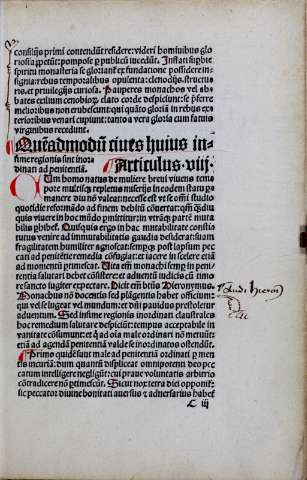 consilijs primi contendūt residere: videri hominibus glo
riosi appetūt: pompose p publicū incedūt. Instati supbie
spiritu monasteria se gloriant ex fundatione possidere in-
signia: rebus temporalibus opulenta: clenodijs: structu
ris et privilegijs curiosa. Pauperes monachos vel ab-
bates exilium cenobiorum elato corde despiciunt: se prefer
melioribus non erubescūt: qui quāto gloriari in rebus ex
terioribus venari cupiunt: tanto a vera gloria cum fatuis
virginibus recedunt.
Quēadmodū ciues huius in-
fime regionis sunt inor
dinati ad penitentiā. Articulus. vij.
Cum homo natus de muliere brevi vivens tem
pore multisque repletus miserijs in eodem statu per
manere diu nō valeat: necesse est vt se omni studio
quotidie reformādo ad finem debitū conuertat:
quis vivere in hoc mūdo permittitur: in vtramque partē muta
bilis perhibet. Quisquis ergo in hac mutabilitate consti
tutus venire ad immutabilitatis gaudia desiderat: suam
fragilitatem humiliter agnoscat: sempque post lapsum pec
cati ad penitētie remedia confugiat: et iacere in scelere etiā
ad momentū pertimescat. Vita em monachi semp in peni-
tentia salutari debet cōsistere: et aduentū iudicis cū timo
re sancto iugiter expectare. Dicit em beatus Hieronymus.
Monachus nō docentis sed plāgentis habet officium:
qui vel se lugeat vel mundum: et dn̄i pauidus prestoletur
aduentum. Sed infime regionis inordinati claustrales
hoc remedium salutare despiciūt: tempus acceptabile in
vanitate cōsumunt: et quod oīa male ordinari nō metuūt:
etiā ad agendā penitentiā valde se inordinatos ostendūt.
Primo quidē sunt male ad penitentiā ordinati per men
tis incuriā: dum quantū displiceat omnipotenti deo pec
catum intelligere negligūt: cui prauo voluntatis arbitrio
cōtradicere nō pertimescūt. Sicut nox terra diei opponit:
sic peccator diuine bonitati auersus et aduersarius habet
C iij